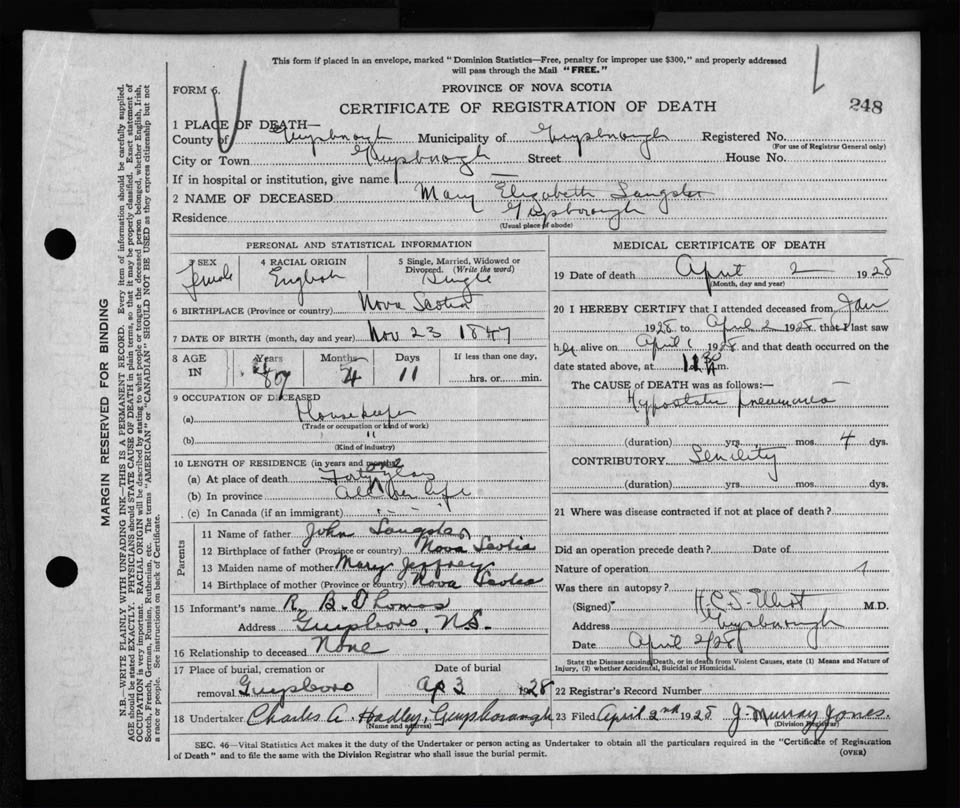 This form if placed in an envelope, marked "Dominion Statistics—Free, penalty for improper use $300," and properly addressed
will pass through the Mail "FREE."
FORM 6.
PROVINCE OF NOVA SCOTIA
CERTIFICATE OF REGISTRATION OF DEATH
248
1 PLACE OF DEATH—
County of Guysborough Municipality of Guysborough Registered No.
(For use of Registrar General only)
City or Town Guysborough Street House No.
If in hospital or institution, give name —
2 NAME OF DECEASED Mary Elizabeth Langster
Residence Guysborough
(Usual place of abode)
PERSONAL AND STATISTICAL INFORMATION
3 SEX female
4 RACIAL ORIGIN English
5 Single, Married, Widowed or Divorced. (Write the word) Single
6 BIRTHPLACE (Province or country) Nova Scotia
7 DATE OF BIRTH (month, day and year) Nov 23 1847
8 AGE IN Years Months 4 Days 11 If less than one day, hrs. or min.
9 OCCUPATION OF DECEASED
(a) Housekeeper
(Trade or occupation or kind of work)
(b) "
(Kind of industry)
10 LENGTH OF RESIDENCE (in years and months)
(a) At place of death
(b) In province All her life
(c) In Canada (if an immigrant)
Parents
11 Name of father John Langster
12 Birthplace of father (Province or country) Nova Scotia
13 Maiden name of mother Mary Jeffrey
14 Birthplace of mother (Province or country) Nova Scotia
15 Informant's name R. B. Thomas
Address Guysboro, N.S.
16 Relationship to deceased None
17 Place of burial, cremation or removal Guysboro Date of burial Ap 3 1928
18 Undertaker Charles A. Hadley, Guysborough
(Name and address)
MEDICAL CERTIFICATE OF DEATH
19 Date of death April 2 1928
(Month, day and year)
20 I HEREBY CERTIFY that I attended deceased from Jan
1928 to April 2 1928, that I last saw
her alive on April 1 1928 and that death occurred on the
date stated above, at m.
The CAUSE OF DEATH was as follows:—
Hypostatic pneumonia
(duration) yrs. mos. 4 dys.
CONTRIBUTORY Senility
(duration) yrs. mos. dys.
21 Where was disease contracted if not at place of death?
Did an operation precede death? Date of
Nature of operation
Was there an autopsy?
(Signed) M.D.
Address Guysborough
Date April 2/28
State the Disease causing Death, or in death from Violent Causes, state (1) Means and Nature of
Injury, (2) whether Accidental, Suicidal or Homicidal.
22 Registrar's Record Number
23 Filed April 2nd 1928 J. Murray Jones.
(Division Registrar)
SEC. 46—Vital Statistics Act makes it the duty of the Undertaker or person acting as Undertaker to obtain all the particulars required in the "Certificate of Registration
of Death" and to file the same with the Division Registrar who shall issue the burial permit.
(OVER)
MARGIN RESERVED FOR BINDING
N.B.—WRITE PLAINLY WITH UNFADING INK—THIS IS A PERMANENT RECORD. Every item of information should be carefully supplied.
AGE should be stated EXACTLY. PHYSICIANS should STATE CAUSE OF DEATH in plain terms, so that it may be properly classified. Exact statement of
OCCUPATION is very important. RACIAL ORIGIN will be described by stating to what people or tongue the deceased person belonged, whether English, Irish,
Scotch, French, German, Russian, Ruthenian, etc. The terms "AMERICAN" or "CANADIAN" SHOULD NOT BE USED as they express citizenship but not
a race or people. See instructions on back of Certificate.